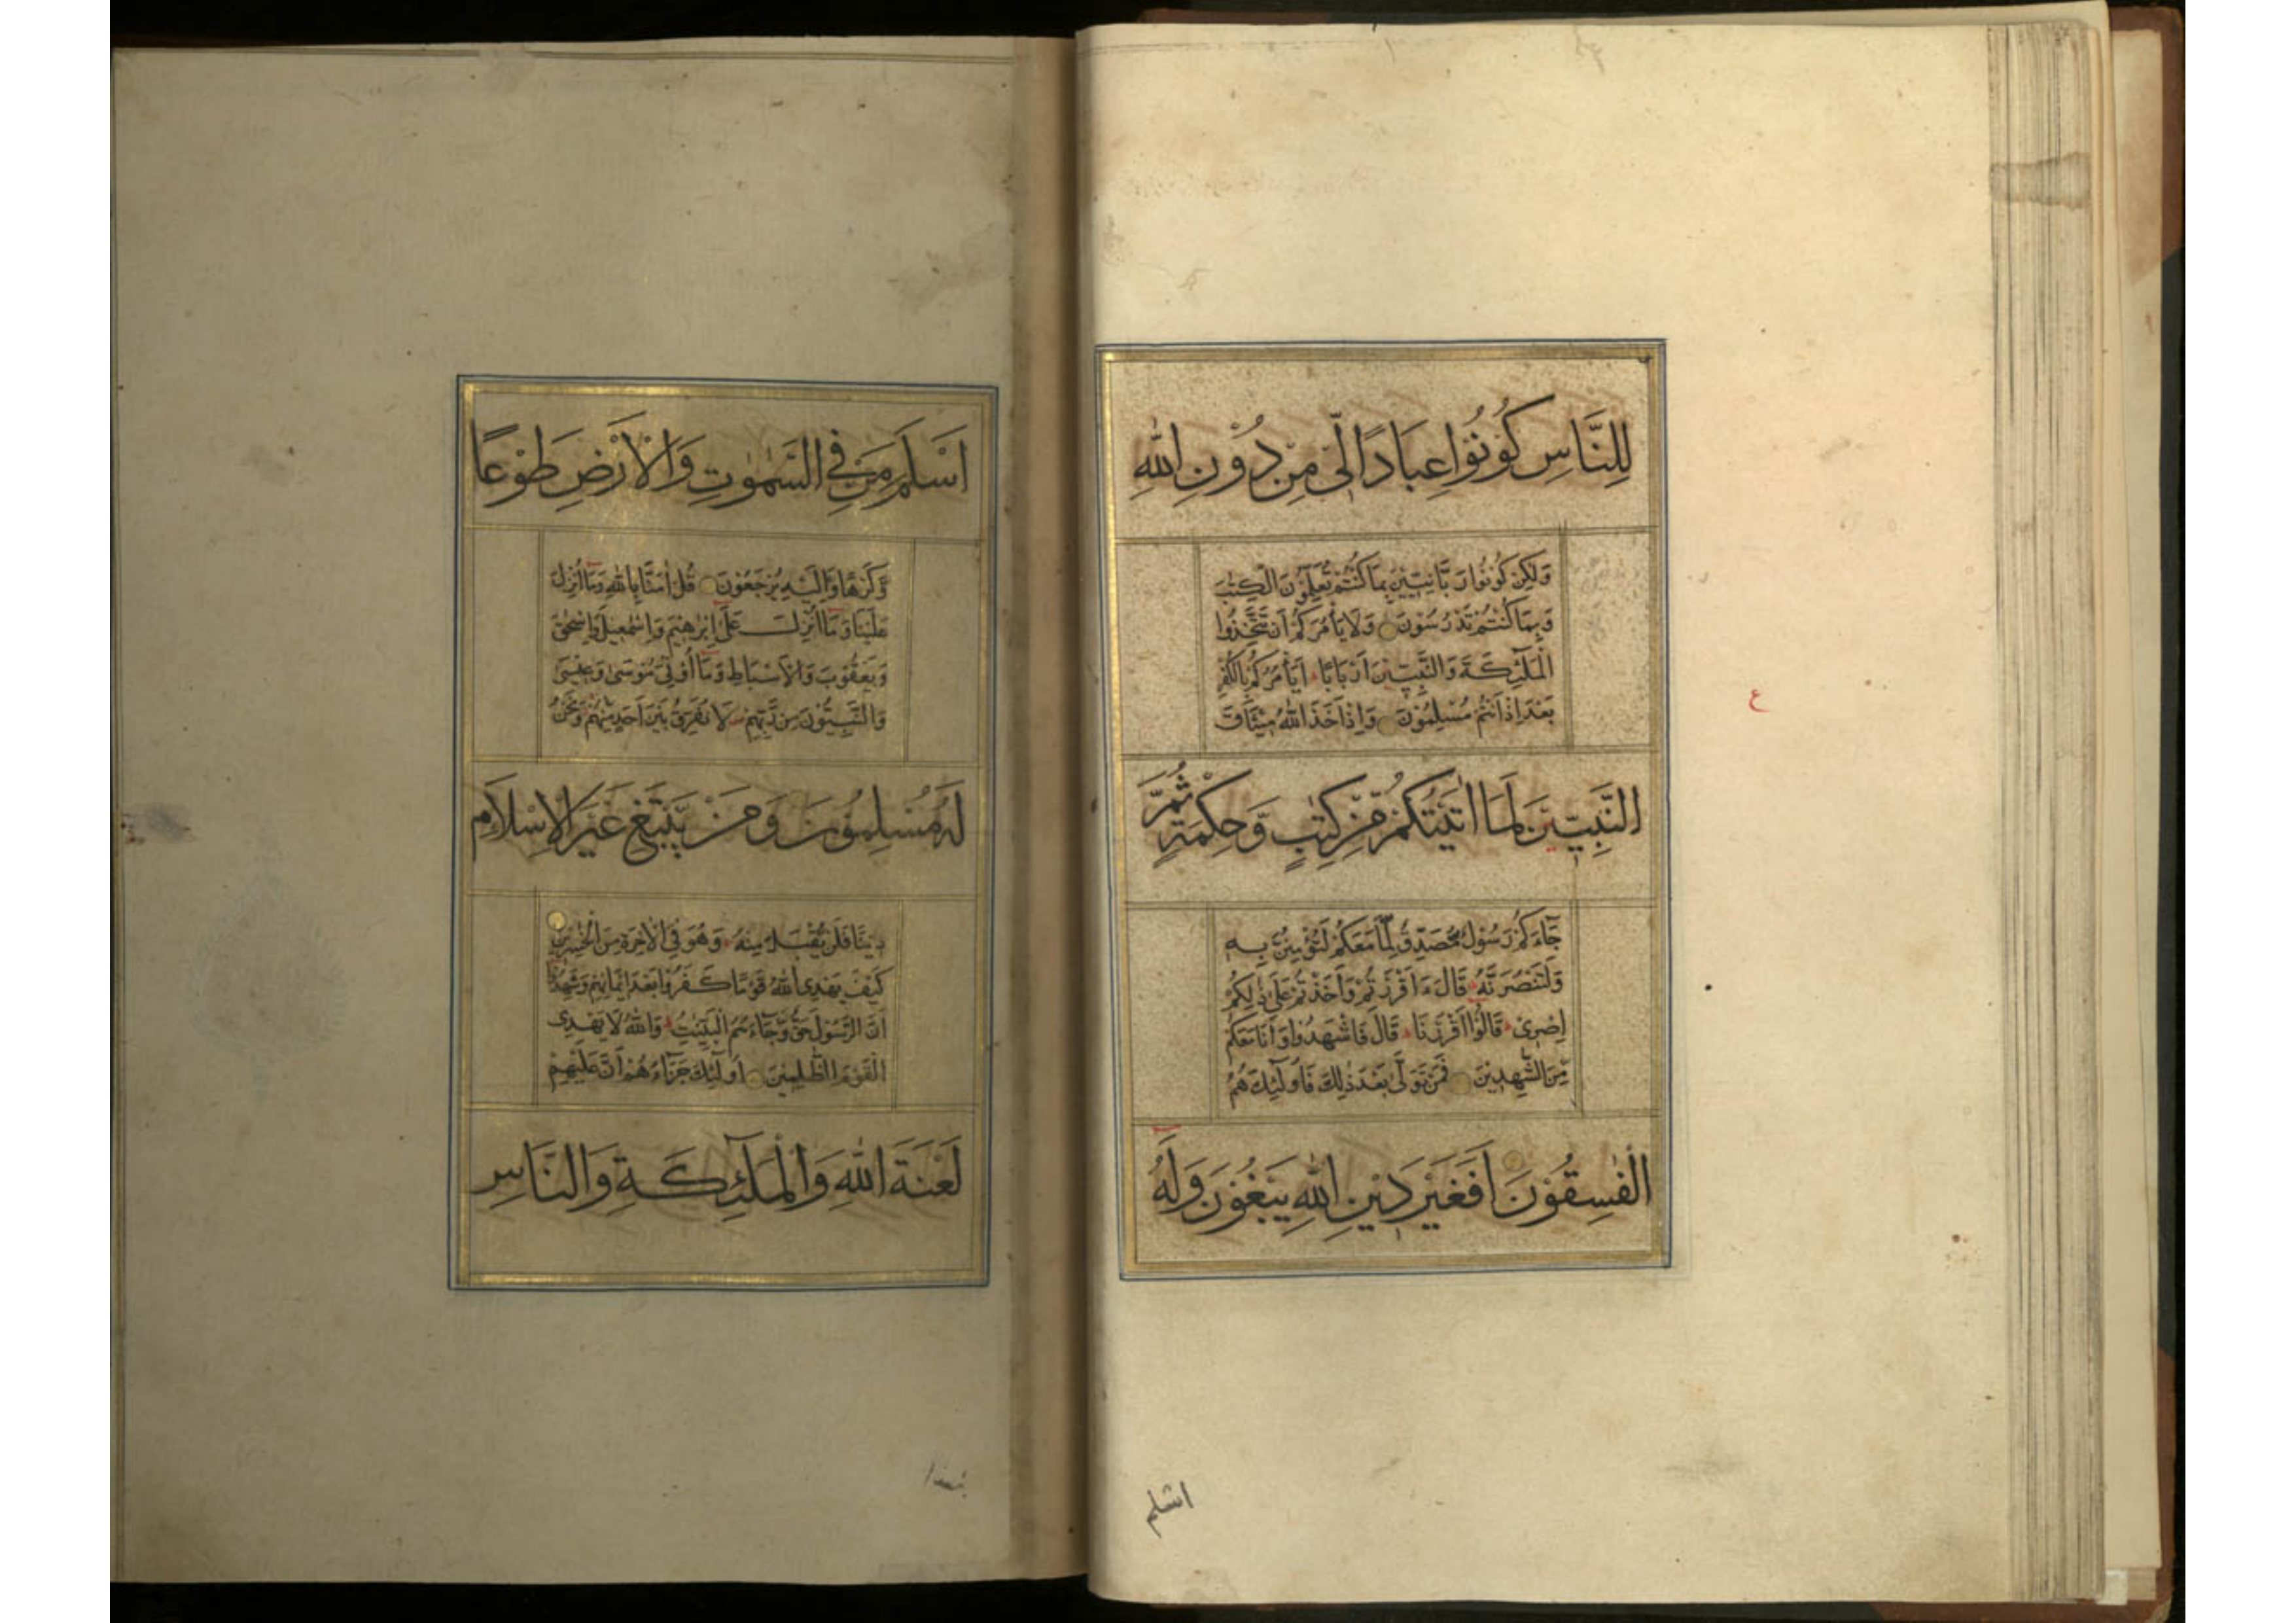 لِلنَّاسِ كُوْنُوْا عِبَادًا لِّىْ مِنْ دُوْنِ اللهِ
وَلٰكِنْ كُوْنُوْا رَبَّانِيّٖنَ بِمَا كُنْتُمْ تُعَلِّمُوْنَ الْكِتٰبَ
وَبِمَا كُنْتُمْ تَدْرُسُوْنَ وَلَا يَأْمُرَكُمْ اَنْ تَتَّخِذُوا
الْمَلٰٓئِكَةَ وَالنَّبِيّٖنَ اَرْبَابًا اَيَأْمُرُكُمْ بِالْكُفْرِ
بَعْدَ اِذْ اَنْتُمْ مُسْلِمُوْنَ وَاِذْ اَخَذَ اللهُ مِيْثَاقَ
النَّبِيّٖنَ لَمَا اٰتَيْتُكُمْ مِّنْ كِتٰبٍ وَّحِكْمَةٍ ثُمَّ
جَآءَكُمْ رَسُوْلٌ مُّصَدِّقٌ لِّمَا مَعَكُمْ لَتُؤْمِنُنَّ بِهٖ
وَلَتَنْصُرُنَّهٗ قَالَ ءَاَقْرَرْتُمْ وَاَخَذْتُمْ عَلٰى ذٰلِكُمْ
اِصْرِىْ قَالُوْا اَقْرَرْنَا قَالَ فَاشْهَدُوْا وَاَنَا مَعَكُمْ
مِّنَ الشّٰهِدِيْنَ فَمَنْ تَوَلّٰى بَعْدَ ذٰلِكَ فَاُولٰٓئِكَ هُمُ
الْفٰسِقُوْنَ اَفَغَيْرَ دِيْنِ اللهِ يَبْغُوْنَ وَلَهٗ
اسلم
ع
اَسْلَمَ مَنْ فِى السَّمٰوٰتِ وَالْاَرْضِ طَوْعًا
وَّكَرْهًا وَّاِلَيْهِ يُرْجَعُوْنَ قُلْ اٰمَنَّا بِاللهِ وَمَا اُنْزِلَ
عَلَيْنَا وَمَا اُنْزِلَ عَلٰى اِبْرٰهِيْمَ وَاِسْمٰعِيْلَ وَاِسْحٰقَ
وَيَعْقُوْبَ وَالْاَسْبَاطِ وَمَا اُوْتِىَ مُوْسٰى وَعِيْسٰى
وَالنَّبِيُّوْنَ مِنْ رَّبِّهِمْ لَا نُفَرِّقُ بَيْنَ اَحَدٍ مِّنْهُمْ وَنَحْنُ
لَهٗ مُسْلِمُوْنَ وَمَنْ يَّبْتَغِ غَيْرَ الْاِسْلَامِ
دِيْنًا فَلَنْ يُّقْبَلَ مِنْهُ وَهُوَ فِى الْاٰخِرَةِ مِنَ الْخٰسِرِيْنَ
كَيْفَ يَهْدِى اللهُ قَوْمًا كَفَرُوْا بَعْدَ اِيْمَانِهِمْ وَشَهِدُوْا
اَنَّ الرَّسُوْلَ حَقٌّ وَّجَآءَهُمُ الْبَيِّنٰتُ وَاللهُ لَا يَهْدِى
الْقَوْمَ الظّٰلِمِيْنَ اُولٰٓئِكَ جَزَآؤُهُمْ اَنَّ عَلَيْهِمْ
لَعْنَةَ اللهِ وَالْمَلٰٓئِكَةِ وَالنَّاسِ